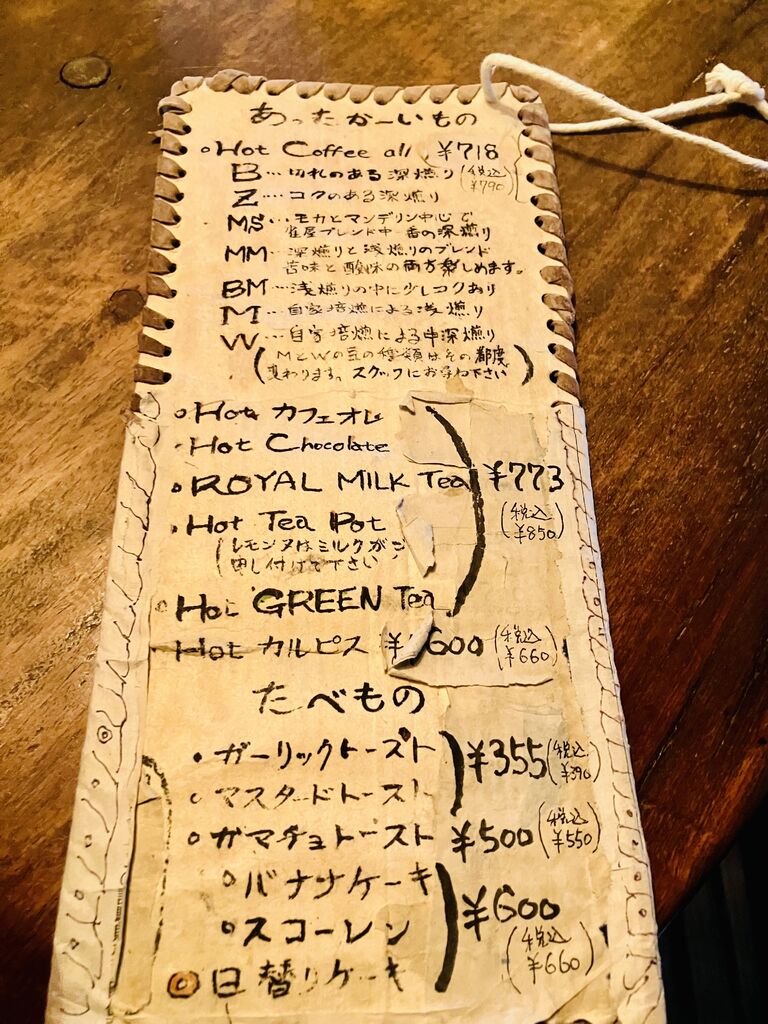 あったかーいもの
Hot Coffee all ¥718
(税込 ¥790)
B…切れのある深煎り
Z…コクのある深煎り
MS…モカとマンデリン中心で
雀屋ブレンド中一番の深煎り
MM…深煎りと浅煎りのブレンド
苦味と酸味の両方楽しめます。
BM…浅煎りの中に少しコクあり
M…自家焙煎による浅煎り
W…自家焙煎による中深煎り
(MとWの豆の種類はその都度
変わります。スタッフにお尋ね下さい)
Hot カフェオレ
Hot Chocolate
ROYAL MILK Tea ¥773
(税込 ¥850)
Hot Tea Pot
(レモン又はミルクがご
申し付け下さい)
Hot GREEN Tea
Hot カルピス ¥600 (税込 ¥660)
たべもの
・ガーリックトースト ¥355 (税込 ¥390)
・マスタードトースト
・ガマチョトースト ¥500 (税込 ¥550)
バナナケーキ
スコーレン ¥600
(税込 ¥660)
日替りケーキ